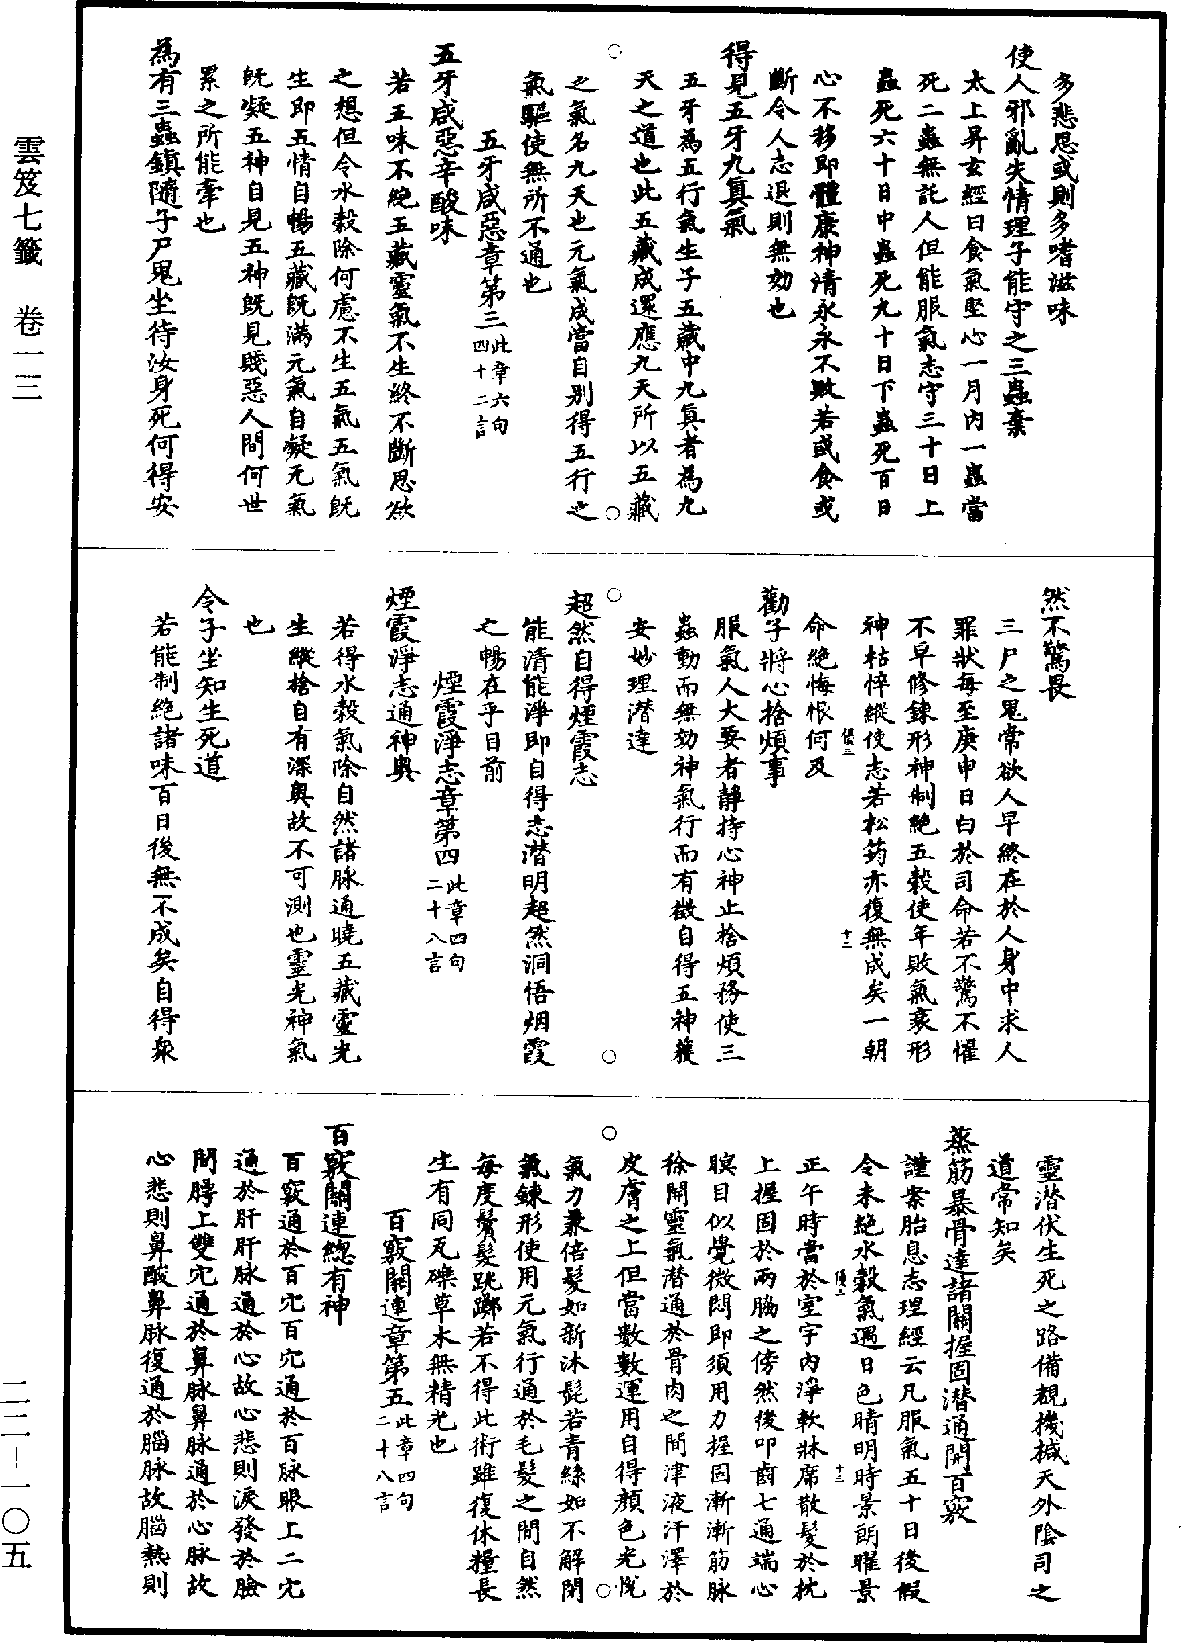 雲笈七籤　卷一三
二二－一〇五
多悲思或則多嗜滋味
使人邪亂失情理子能守之三蟲棄
太上昇玄經曰食氣堅心一月內一蟲當
死二蟲無託人但能服氣志守三十日上
蟲死六十日中蟲死九十日下蟲死百日
心不移即體康神清永永不敗若或食或
斷令人志退則無効也
得見五牙九真氣
五牙為五行氣生子五藏中九真者為九
天之道也此五藏成還應九天所以五藏
之氣名九天也元氣成當自別得五行之
氣驅使無所不通也
五牙咸惡章第三此章六句四十二言
五牙咸惡辛酸味
若五味不絶五藏靈氣不生終不斷思欲
之想但令水穀除何慮不生五氣五氣既
生即五情自暢五藏既滿元氣自凝元氣
既凝五神自見五神既見賤惡人間何世
累之所能牽也
為有三蟲鎮隨子尸鬼坐待汝身死何得安
然不驚畏
三尸之鬼常欲人早終在於人身中求人
罪狀每至庚申日白於司命若不驚不懼
不早修鍊形神制絶五穀使年敗氣衰形
神枯悴縱使志若松筠亦復無成矣一朝
命絶悔恨何及
勸子將心捨煩事
服氣人大要者靜持心神止捨煩務使三
蟲動而無効神氣行而有徵自得五神獲
安妙理潜達
超然自得煙霞志
能清能淨即自得志潜明超然洞悟烟霞
之暢在乎目前
煙霞淨志章第四此章四句二十八言
煙霞淨志通神奧
若得水穀氣除自然諸脉通曉五藏靈光
生縱捨自有深奧故不可測也靈光神氣
也
令子坐知生死道
若能制絶諸味百日後無不成矣自得衆
靈潜伏生死之路備覩機椷天外陰司之
道常知矣
蒸筋暴骨達諸關握固潜通開百竅
謹案胎息志理經云凡服氣五十日後假
令未絶水穀氣遇日色晴明時景朗曜景
正午時當於室宇內淨軟牀席散髮於枕
上握固於兩脇之傍然後叩齒七通端心
瞑目似覺微悶即須用力握固漸漸筋脉
徐開靈氣潜通於骨肉之間津液汗澤於
皮膚之上但當數數運用自得顏色光悅
氣力兼倍髮如新沐髭若青絲如不解閉
氣鍊形使用元氣行通於毛髮之間自然
每度鬢髮跳躑若不得此術雖復休糧長
生有同瓦礫草木無精光也
百竅關連章第五此章四句二十八言
百竅關連總有神
百竅通於百穴百穴通於百脉眼上二穴
通於肝肝脉通於心故心悲則淚發於臉
間膊上雙穴通於鼻脉鼻脉通於心脉故
心悲則鼻酸鼻脉復通於腦脉故腦熱則